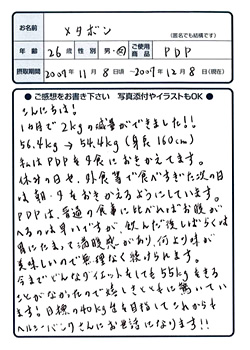 お名前
メタボン
(匿名でも結構です)
年齢 26歳 性別 男・女 ご使用商品 PDP
摂取期間 2007年11月8日頃~2007年12月8日(現在)
● ご感想をお書き下さい 写真添付やイラストもOK ●
こんにちは!
1ヵ月で2kgの減量ができました!!
56.4kg → 54.4kg (身長160cm)
私はPDPを夕食におきかえてます。
休みの日や、外食等で食べすぎた次の日
は朝・夕をおきかえるようにしています。
PDPは、普通の食事に比べればお腹が
へるのは早いですが、飲んだ後しばらくは
胃にたまって満腹感があり、何より味が
美味しいので無理なく続けられます。
今までどんなダイエットをしても55kgをきる
ことがなかったので嬉しさとともに驚いてい
ます!目標の40kg台を目指してこれからも
ヘルシーバンクさんにお世話になります!!